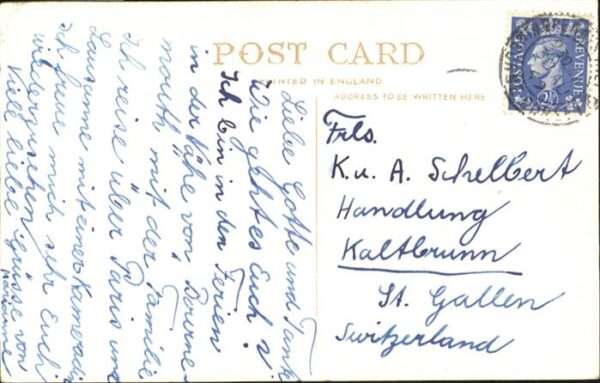 POST CARD
PRINTED IN ENGLAND
ADDRESS TO BE WRITTEN HERE
POSTAGE REVENUE
2½
Liebe Gotte und Tante
Wie geht es Euch?
Ich bin in den Ferien
in der Nähe von Bourne-
mouth mit der Familie
Ich reise über Paris und
Lausanne mit einer Kameradin
Ich freue mich sehr Euch
wiederzusehen
Viele liebe Grüsse von
Frls.
K. u. A. Schelbert
Handlung
Kaltbrunn
St. Gallen
Switzerland